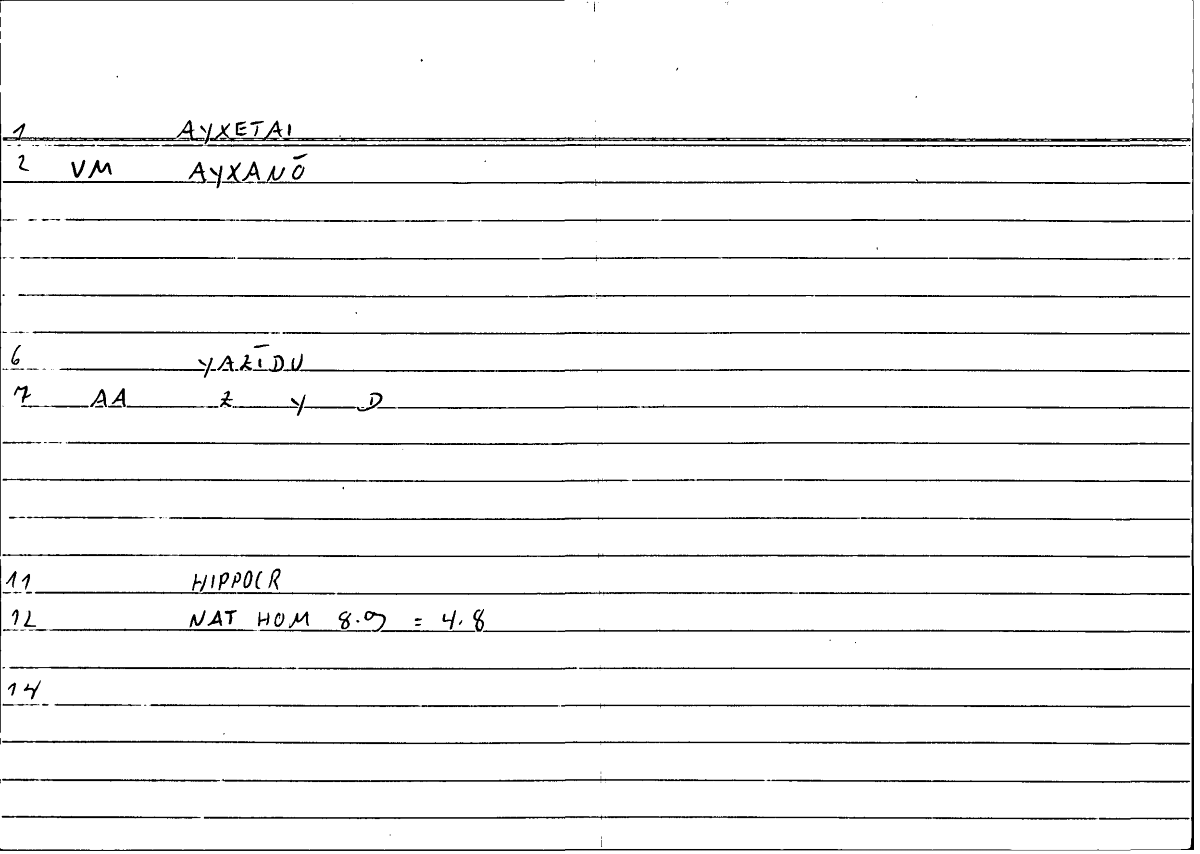 1 AYXETAI
2 VM AYXANŌ
6 YAZĪDU
7 AA Z Y D
11 HIPPOCR
12 NAT HOM 8.9 = 4.8
14